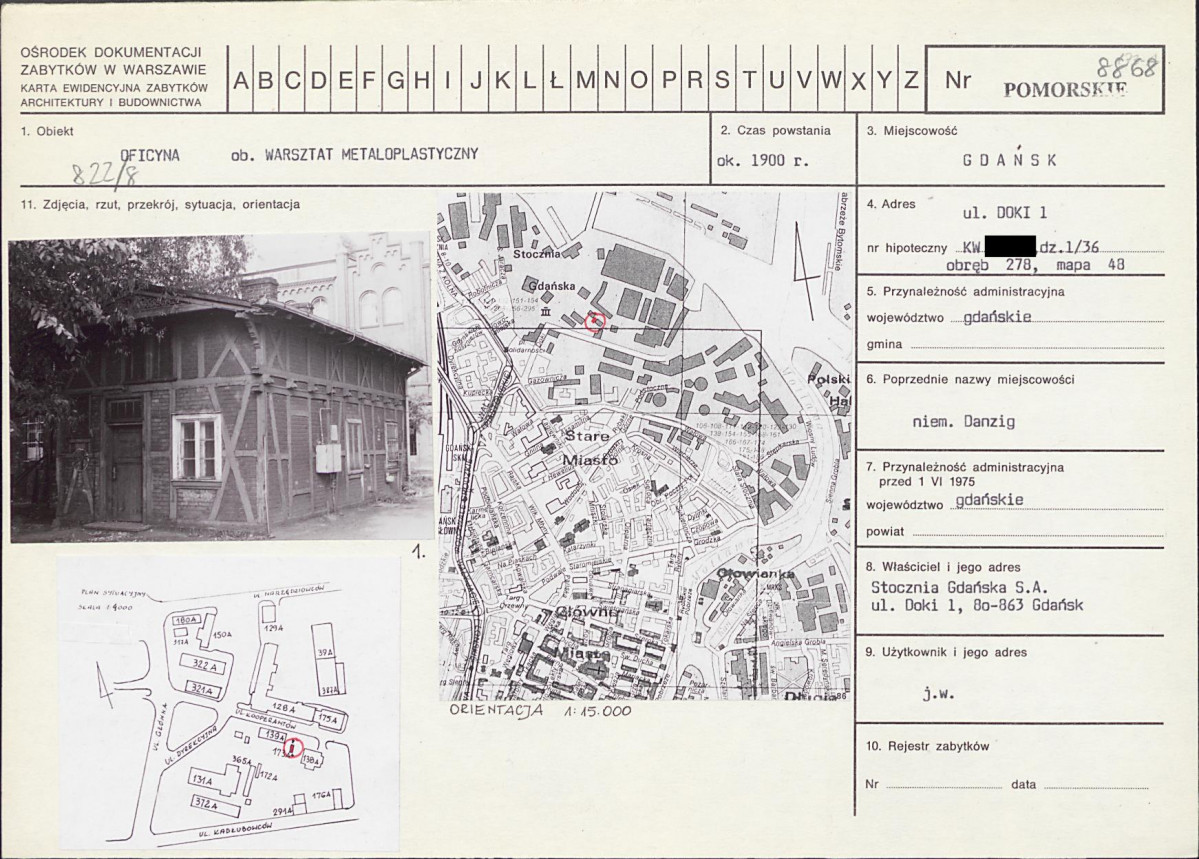 OŚRODEK DOKUMENTACJI
ZABYTKÓW W WARSZAWIE
KARTA EWIDENCYJNA ZABYTKÓW
ARCHITEKTURY I BUDOWNICTWA
A B C D E F G H I J K L Ł M N O P R S T U V W X Y Z
Nr
8868
POMORSKIE
1. Obiekt
OFICYNA ob. WARSZTAT METALOPLASTYCZNY
822/8
2. Czas powstania
ok. 1900 r.
3. Miejscowość
GDAŃSK
11. Zdjęcia, rzut, przekrój, sytuacja, orientacja
4. Adres
ul. DOKI 1
nr hipoteczny KW dz.1/36
obręb 278, mapa 48
5. Przynależność administracyjna
województwo gdańskie
gmina
6. Poprzednie nazwy miejscowości
niem. Danzig
7. Przynależność administracyjna
przed 1 VI 1975
województwo gdańskie
powiat
8. Właściciel i jego adres
Stocznia Gdańska S.A.
ul. Doki 1, 80-863 Gdańsk
9. Użytkownik i jego adres
j.w.
10. Rejestr zabytków
Nr data
1.
Stocznia
Gdańska
Solidarności
Stare
Miasto
Polski
Ołowianka
Główne
Miasto
Długie
Na Piaskach
Katarzynki
Podwale Staromiejskie
Grodzka
Angielska Grobla
ORIENTACJA 1:15.000
PLAN SYTUACYJNY
SKALA 1:4000
UL. NARZĘDZIOWCÓW
180A
150A
129A
322A
321A
39A
382A
128A
175A
UL. KOOPERANTÓW
139A
173A
138A
UL. GŁÓWNA
UL. DYREKCYJNA
365A
172A
131A
372A
291A
176A
UL. KADŁUBOWCÓW